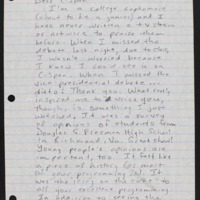 Dear C-Span,
I'm a college sophomore
(about to be a junior) and I
have never written a tv show
or network to praise them
before. When I missed the
debate last night, due to class,
I wasn't worried because
I knew I could see it on
C-Span. When I missed the
vice presidential debate...
ditto. Thank you! What truly
inspired me to write you,
though, is something I just
watched. It was a survey
of opinions of students from
Douglas S. Freeman High School
in Richmond, Va. Great show!
Young people's opinions are
important, too. It felt like
a piece of history
your programming
all your excellent programming.
In addition to seeing the